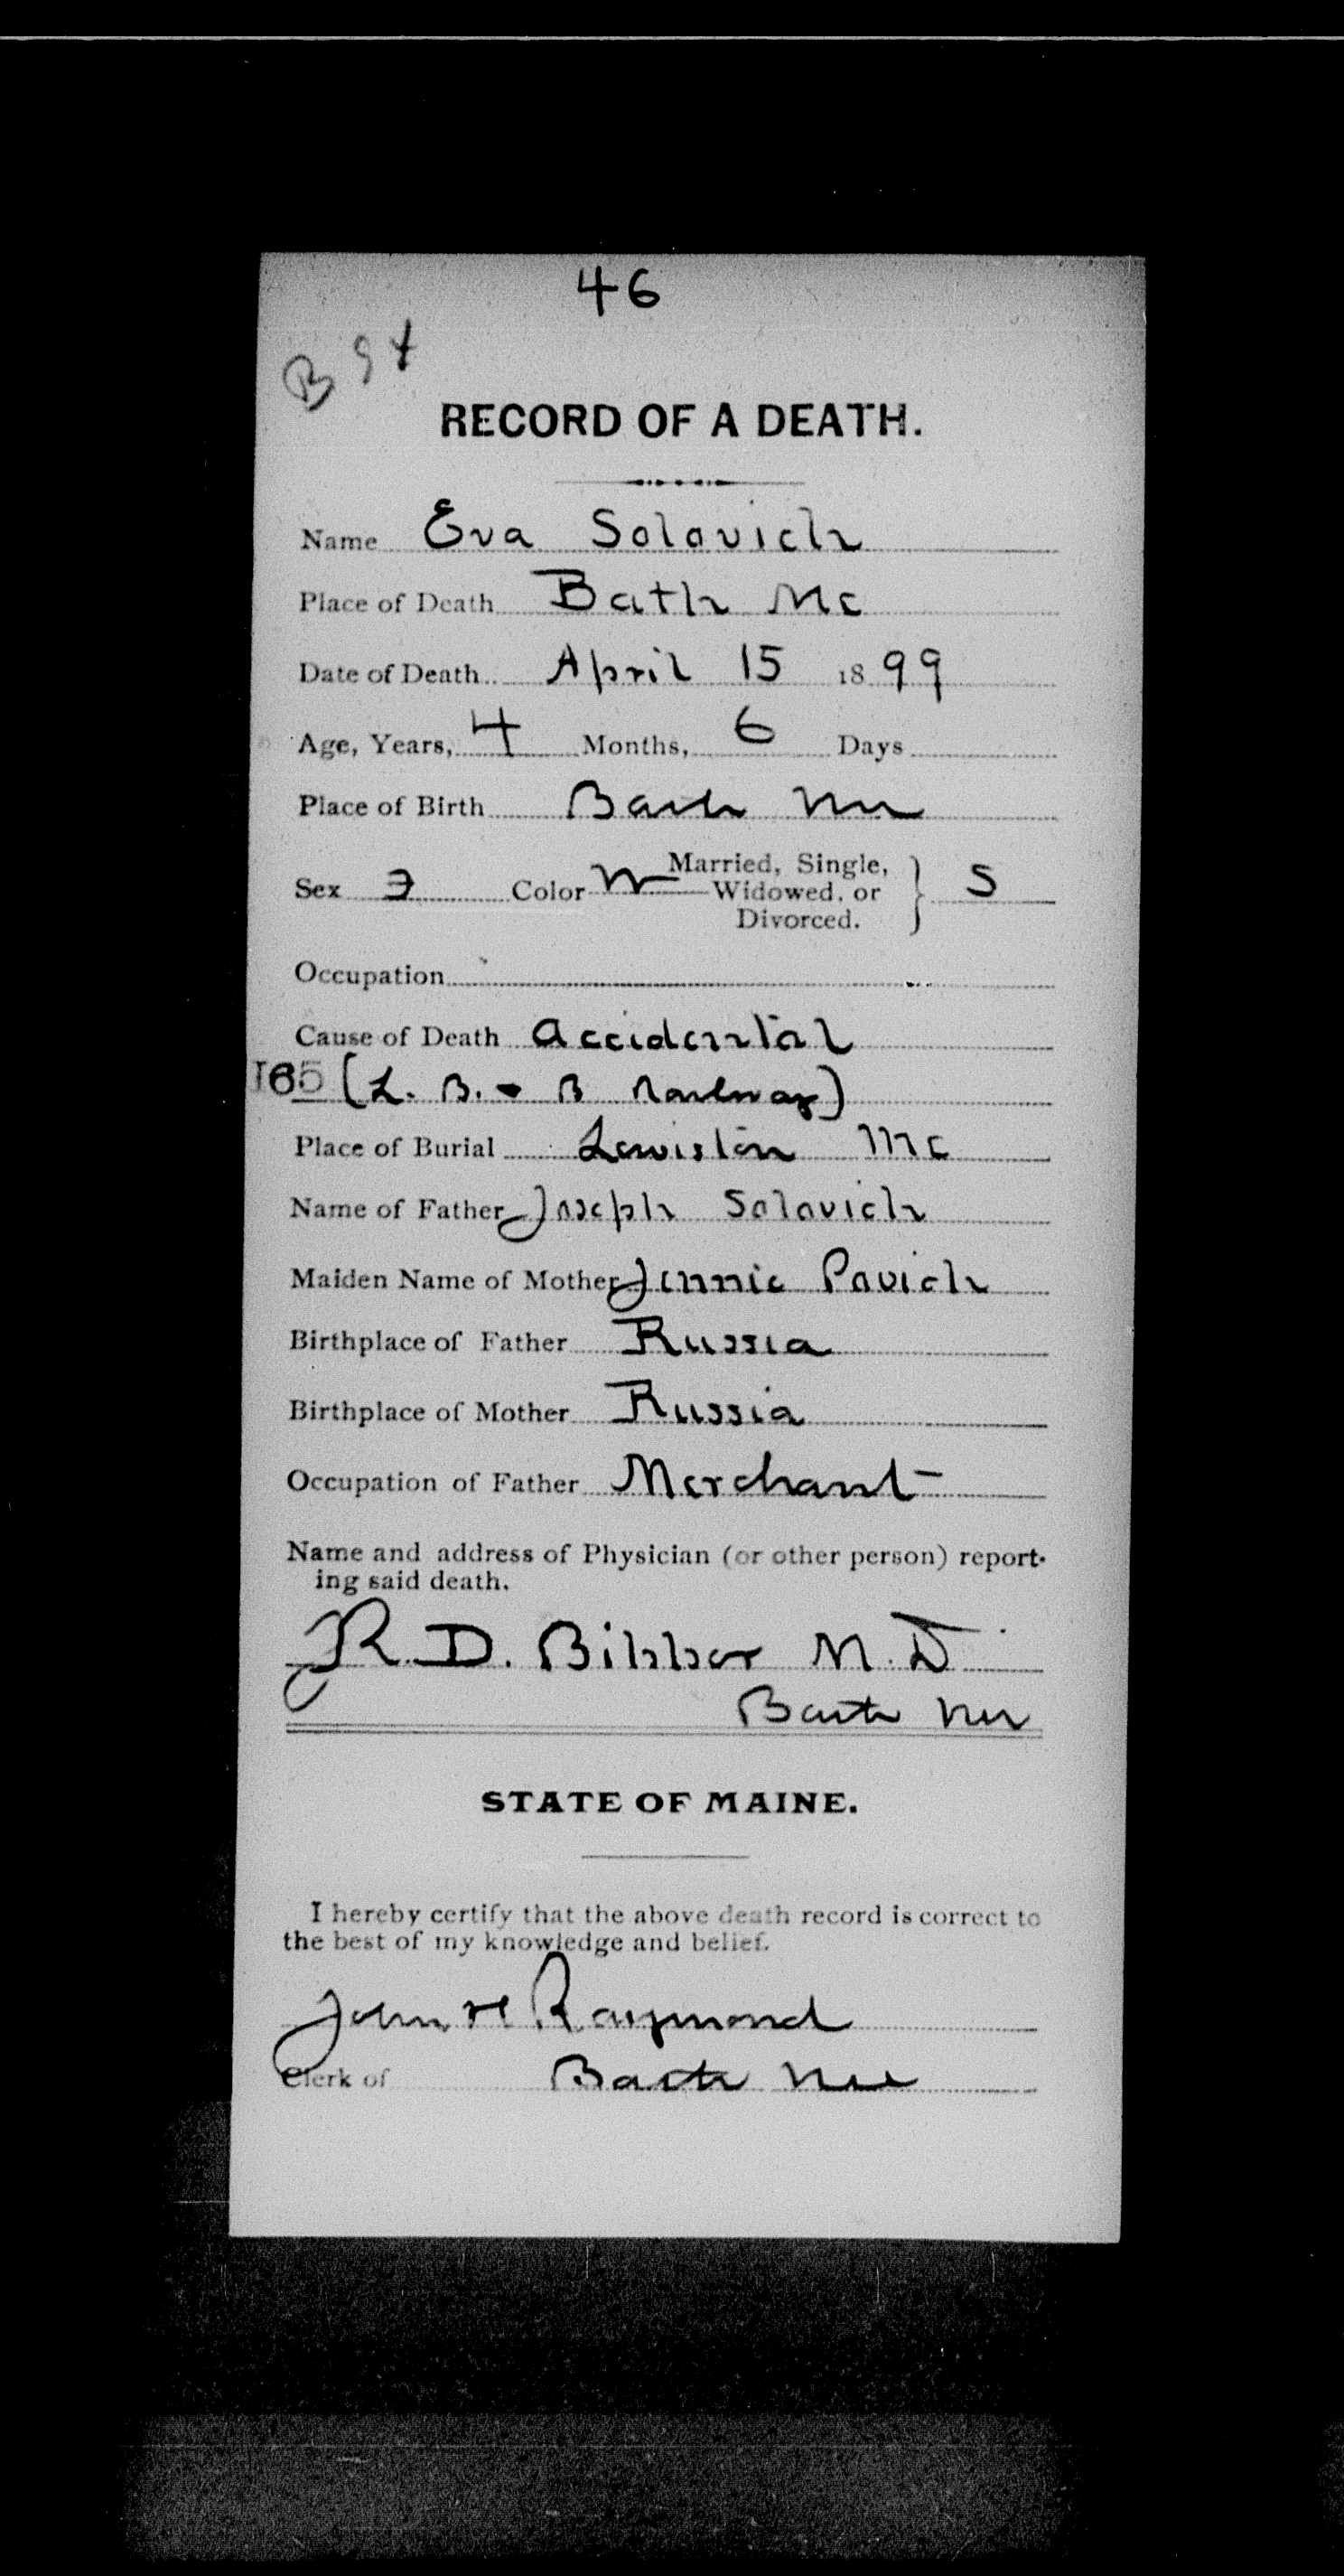 46
B 94
RECORD OF A DEATH.
Name Eva Solovich
Place of Death Bath Me
Date of Death April 15 1899
Age, Years, 4 Months, 6 Days
Place of Birth Bath Me
Sex F Color W Married, Single, Widowed, or Divorced. } S
Occupation
Cause of Death Accidental
165 (L. B. & B Railway)
Place of Burial Lewiston Me
Name of Father Joseph Solovich
Maiden Name of Mother Jennie Povich
Birthplace of Father Russia
Birthplace of Mother Russia
Occupation of Father Merchant
Name and address of Physician (or other person) report-
ing said death.
R. D. Bibber M. D
Bath Me
STATE OF MAINE.
I hereby certify that the above death record is correct to
the best of my knowledge and belief.
John H Raymond
Clerk of Bath Me